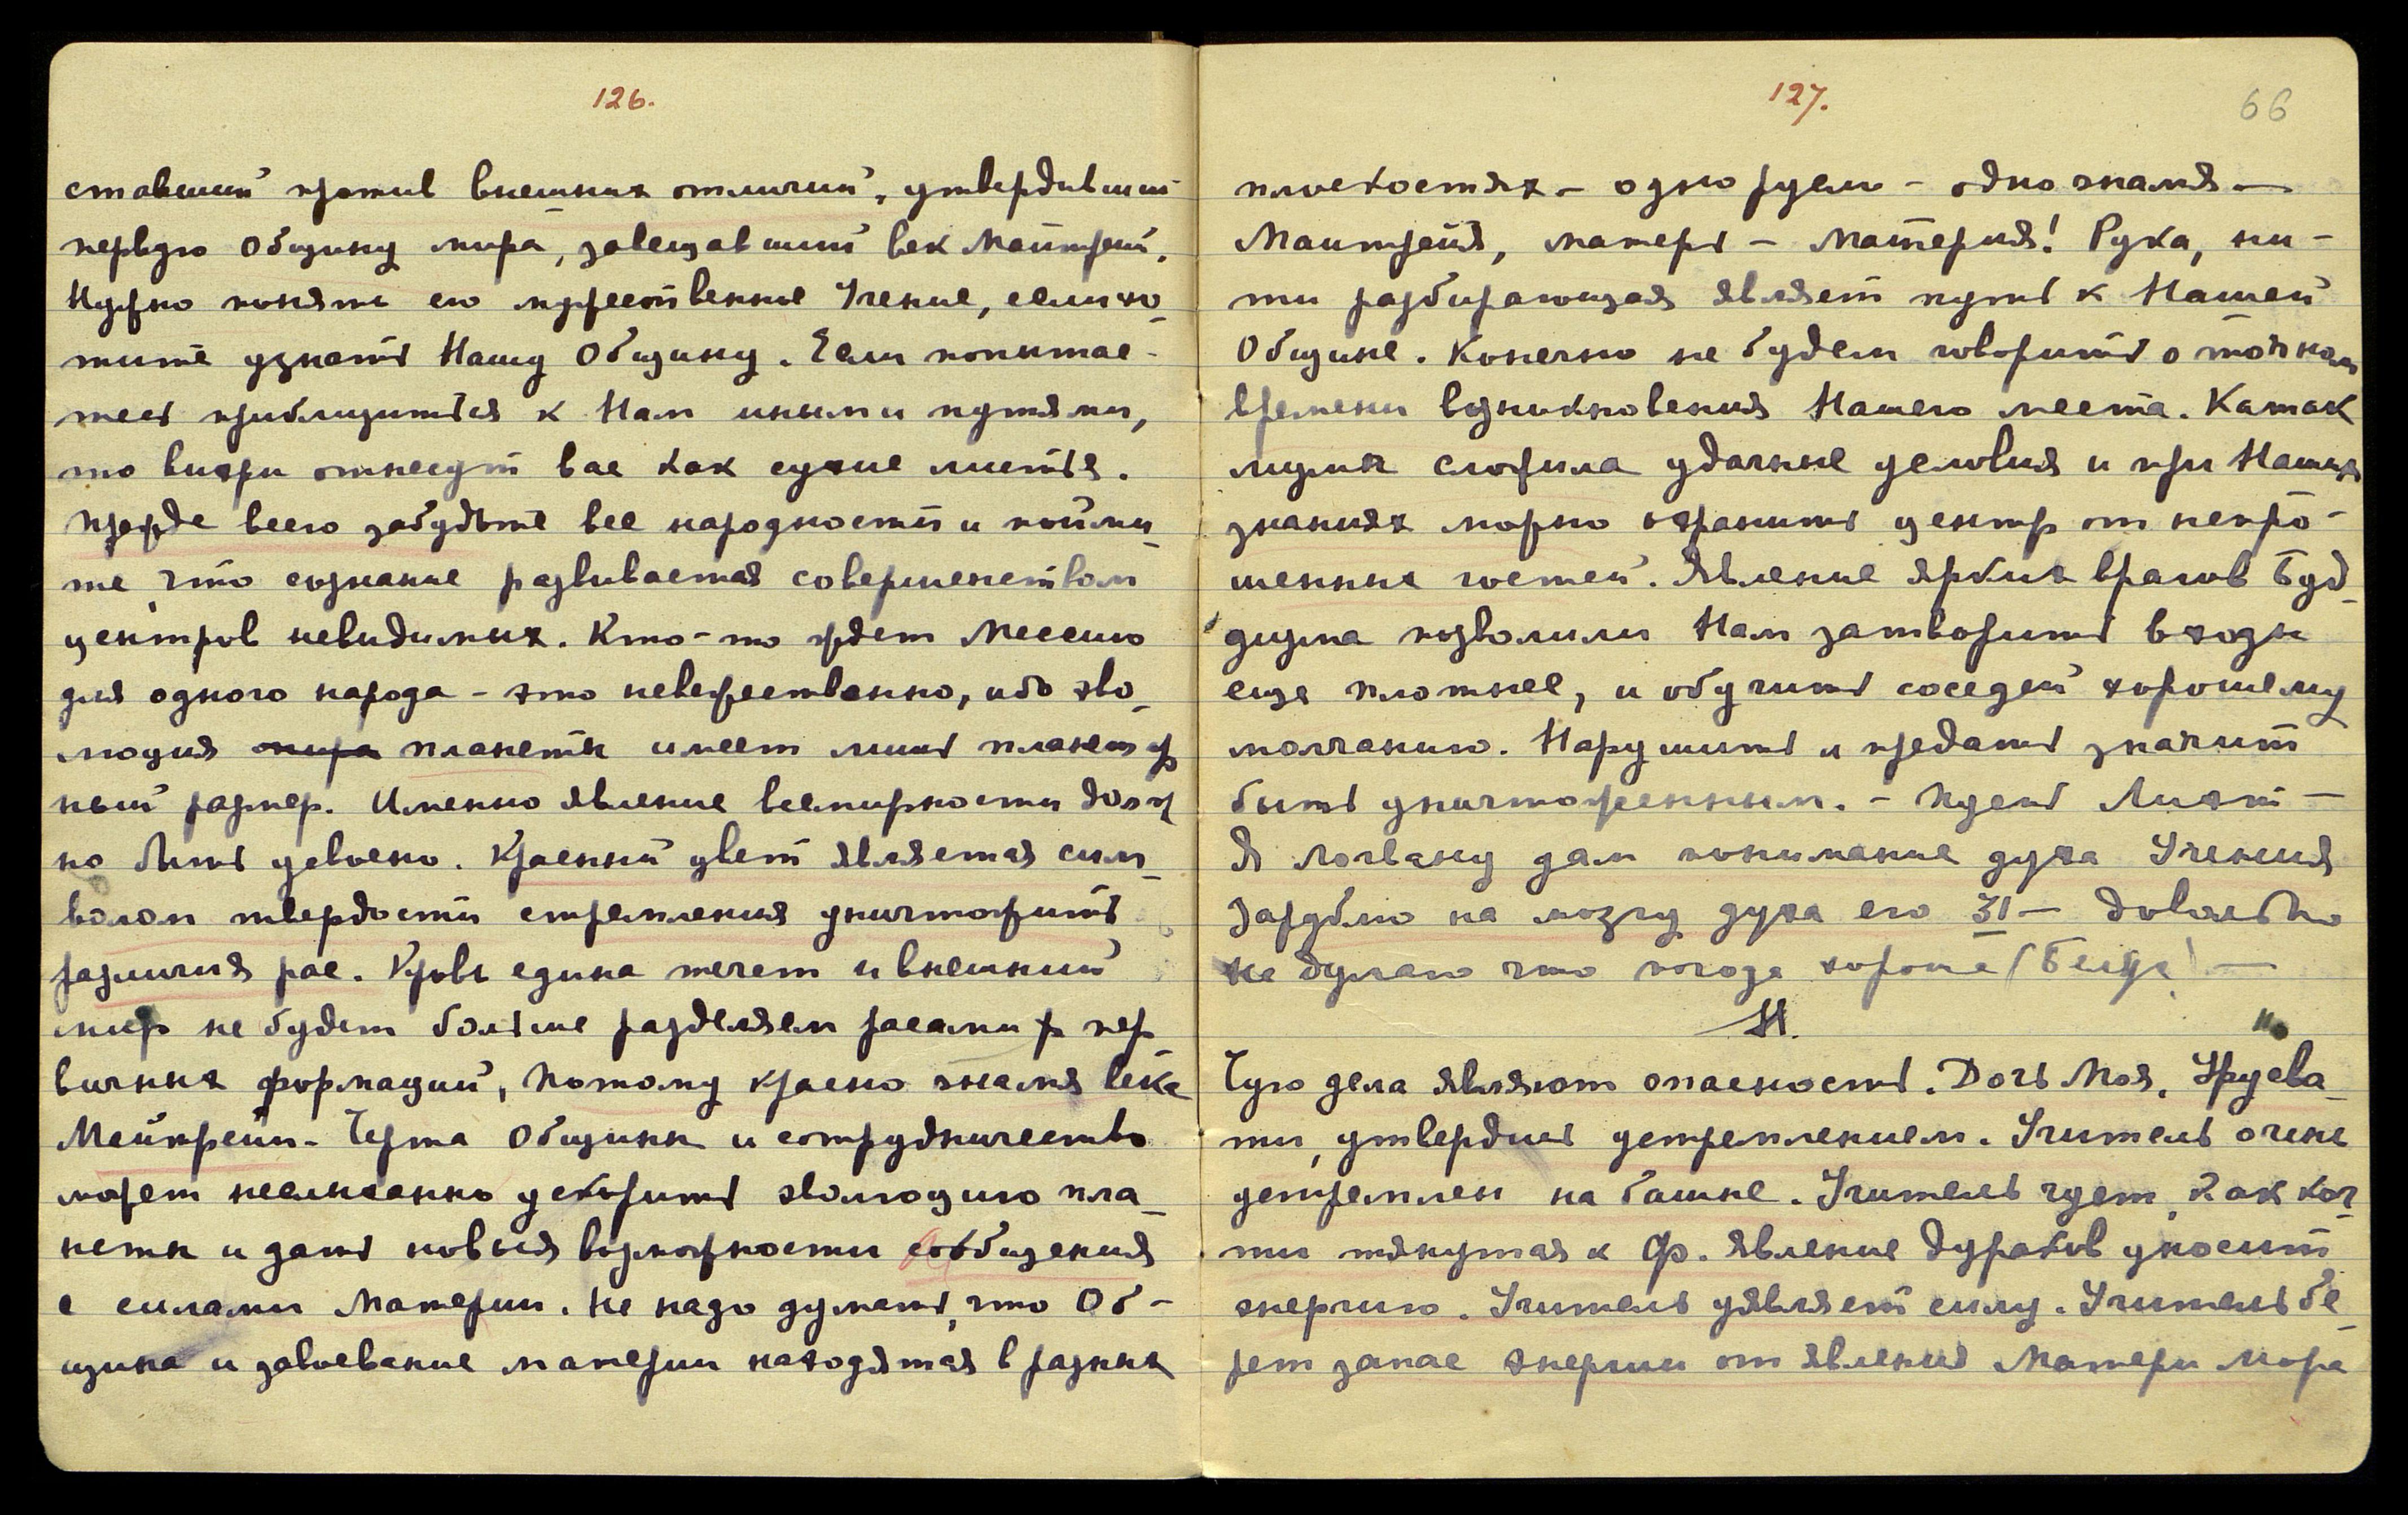 126.
ставший против внешних отличий, утвердивший
первую Общину мира, завещавший век Майтрейи.
Нужно понять его мужественное Учение, если хо-
тите узнать Нашу Общину. Если попытае-
тесь приблизиться к Нам иными путями,
то вихри отнесут вас как сухие листья.
Прежде всего забудьте все народности и пойми-
те, что сознание развивается совершенством
центров невидимых. Кто-то ждет Мессию
для одного народа - это невежественно, ибо эво-
люция мира планеты имеет лишь планет
ный размер. Именно явление всемирности долж
но быть усвоено. Красный цвет является сим-
волом твердости стремления уничтожить
различия рас. Кровь едина течет и внешний
мир не будет больше разделяем расами пер
вичных формаций, потому красно знамя века
Майтрейи. Черта Общины и сотрудничество
может неслыханно ускорить эволюцию пла-
неты и дать новыя возможности сообщения
с силами Материи. Не надо думать, что Об-
щина и завоевание материи находятся в разных
127.
66
плоскостях - одно русло - одно знамя -
Маитрейя, матерь - Материя! Рука, ни-
ти разбирающая являет путь к Нашей
Общине. Конечно не будем говорить о точном
времени возникновения Нашего места. Катак
лизмы сложила удачные условия и при Наших
знаниях можно охранить центр от непро-
шенных гостей. Явление ярких врагов Буд-
дизма позволили Нам затворить входы
еще плотнее, и обучить соседей хорошему
молчанию. Нарушить и предать значит
быть уничтоженным. - Пусть Лихт -
Я Логвану дам понимание духа Учения
Зарублю на мозгу духа его 31 - довольно
не думаю что погода хороша
Н.
но
Чую дела являют опасность. Дочь Моя, Урусва-
ти, утвердись устремлением. Учитель очень
устремлен на башне. Учитель чует, как ког-
ти тянутся к Ф. явление дураков уносит
энергию. Учитель уявляет силу. Учитель бе-
рет запас энергии от явления Матери Мора